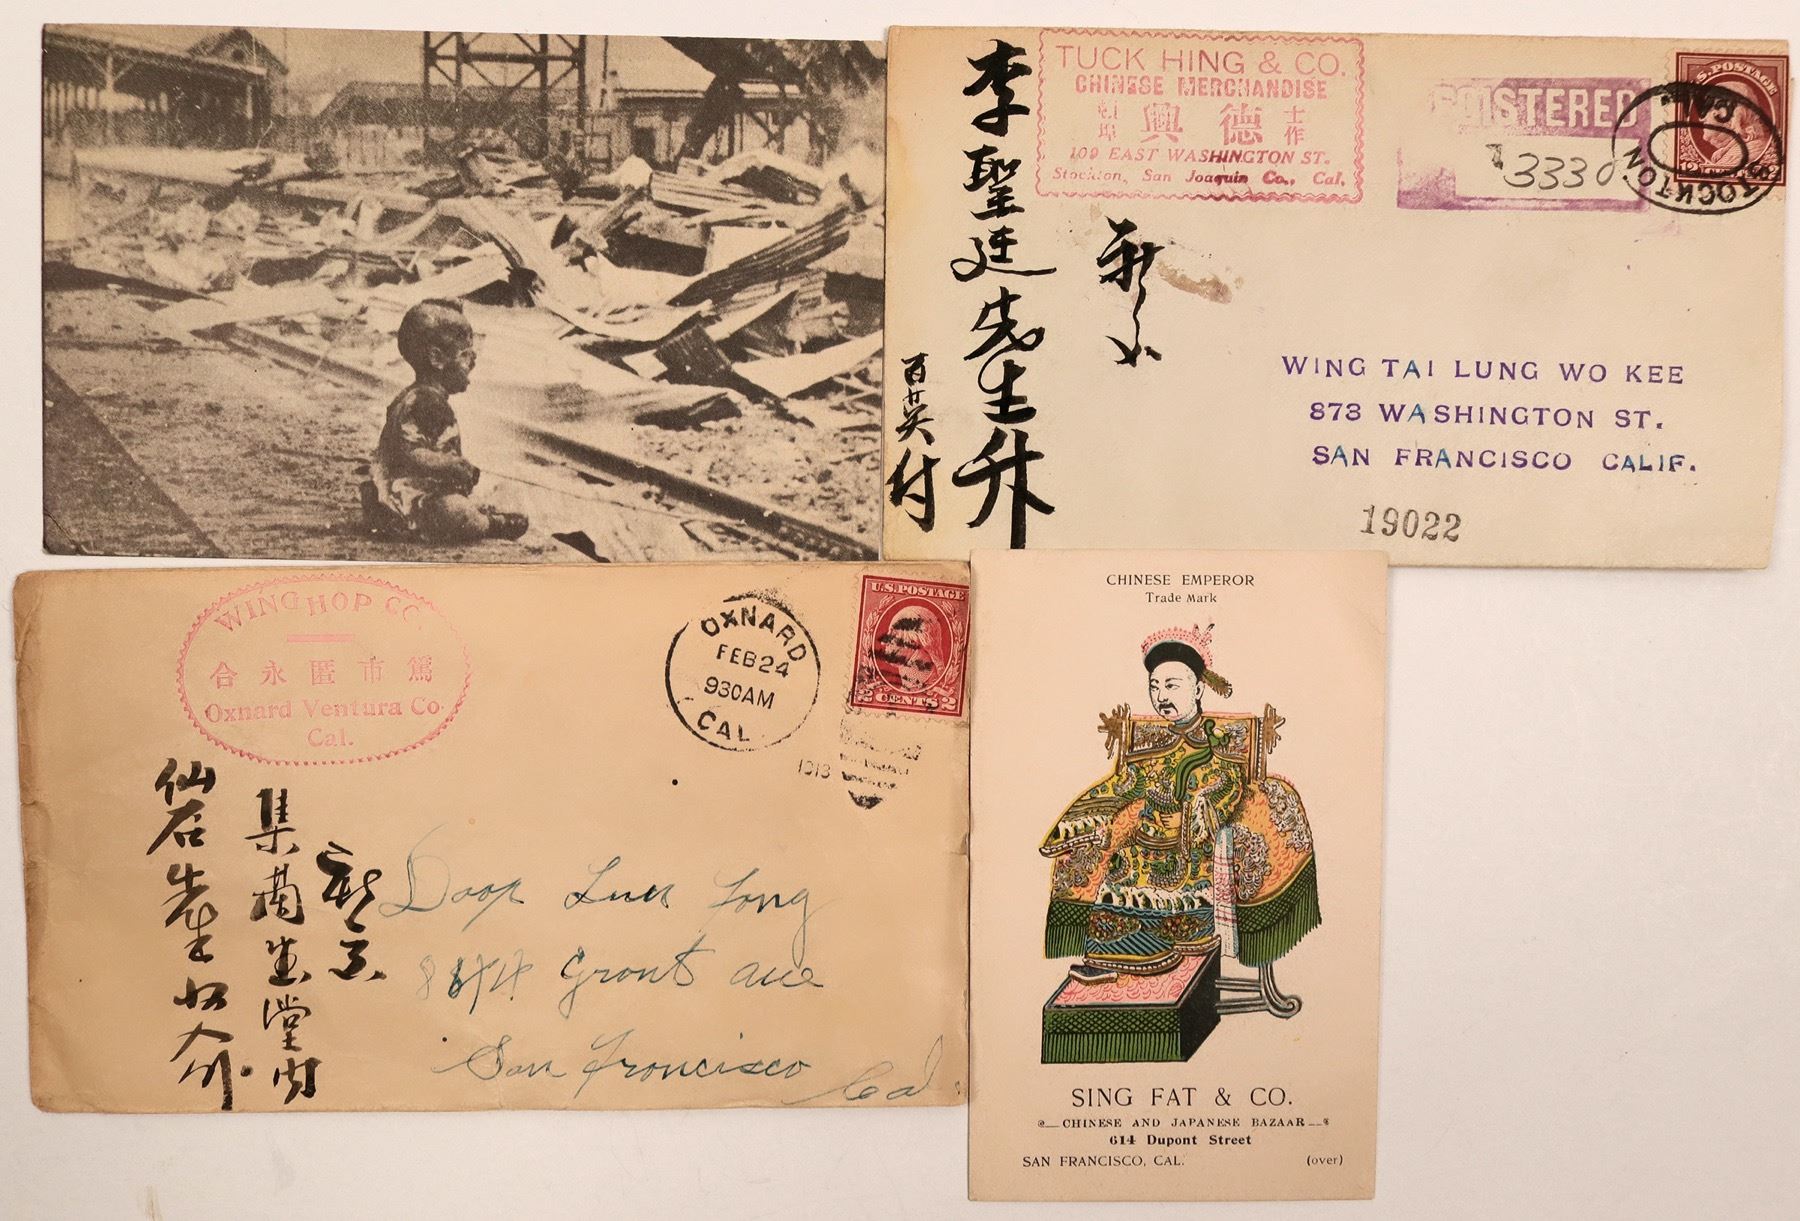 李聖廷先生升
百英付
TUCK HING & CO.
CHINESE MERCHANDISE
士作
德
興
埠
109 EAST WASHINGTON ST.
Stockton, San Joaquin Co., Cal.
REGISTERED
3330
STOCKTON CAL.
U.S. POSTAGE
12
WING TAI LUNG WO KEE
873 WASHINGTON ST.
SAN FRANCISCO CALIF.
19022
WING HOP CO.
合永匿市篤
Oxnard Ventura Co
Cal.
OXNARD
FEB 24
930AM
CAL.
1913
U.S. POSTAGE
2 CENTS 2
仙石先生
集蘭生堂内
Lun Fong
844 Grant ave
San Francisco
Cal
CHINESE EMPEROR
Trade Mark
SING FAT & CO.
CHINESE AND JAPANESE BAZAAR
614 Dupont Street
SAN FRANCISCO, CAL.
(over)